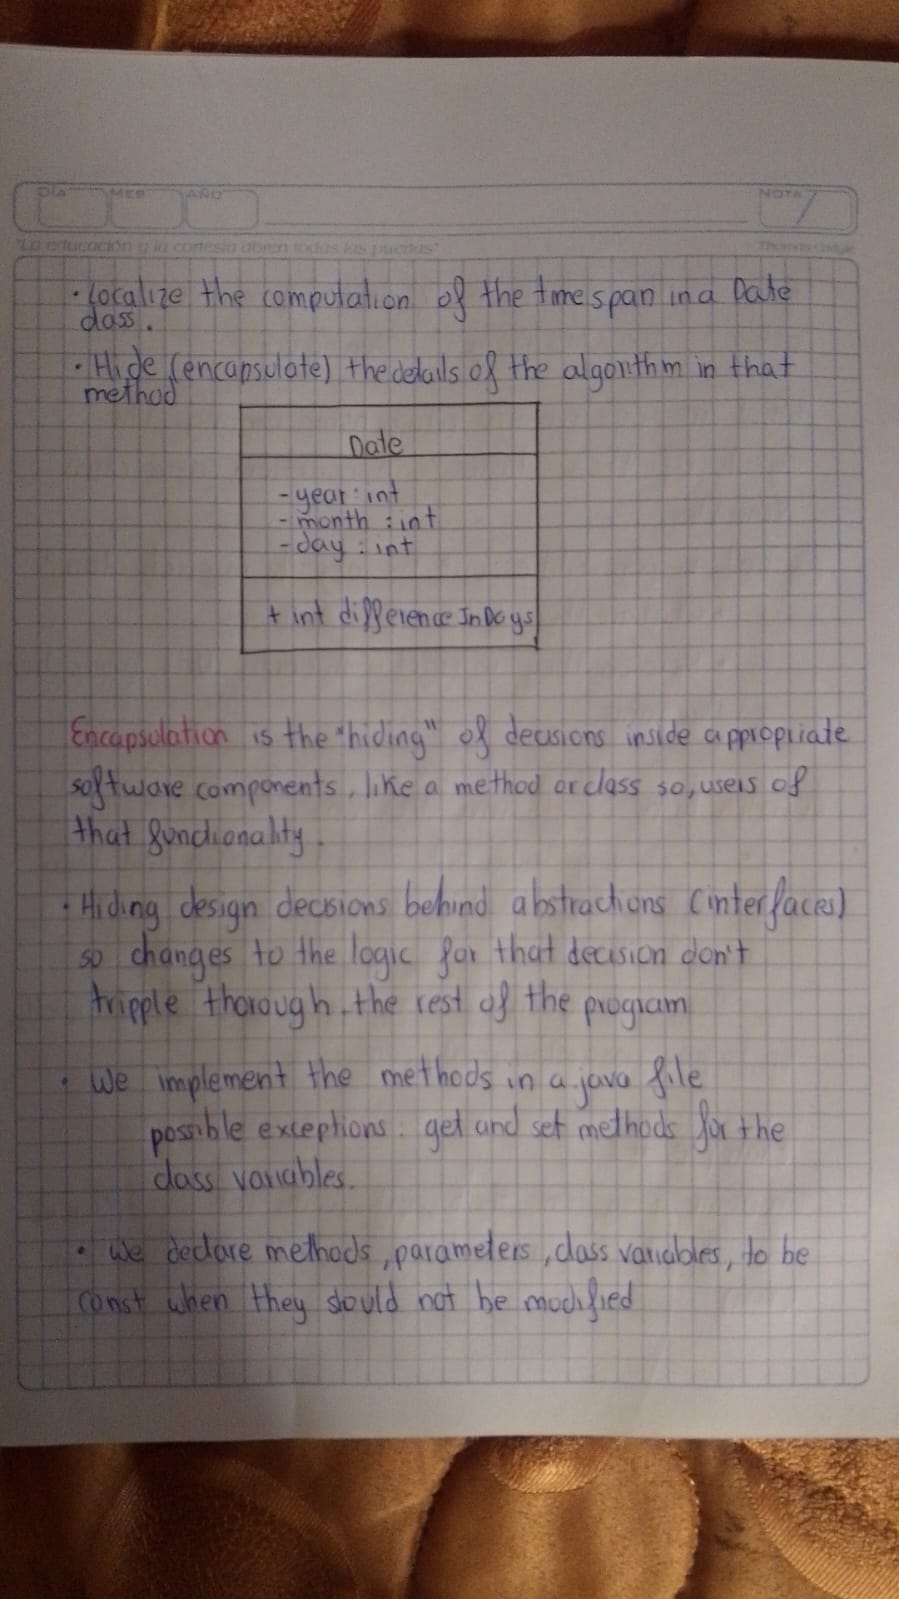 DÍA MES AÑO NOTA
"La educación y la cortesía abren todas las puertas" Thomas Carlyle
• Localize the computation of the time span in a Date
class.
• Hide (encapsulate) the details of the algorithm in that
method
Date
- year : int
- month : int
- day : int
+ int difference InDays
Encapsulation is the "hiding" of decisions inside appropriate
software components, like a method or class so, users of
that functionality.
• Hiding design decisions behind abstractions (interfaces)
so changes to the logic for that decision don't
tripple thorough the rest of the program
• We implement the methods in a java file
possible exceptions: get and set methods for the
class variables.
• We declare methods, parameters, class variables, to be
const when they should not be modified